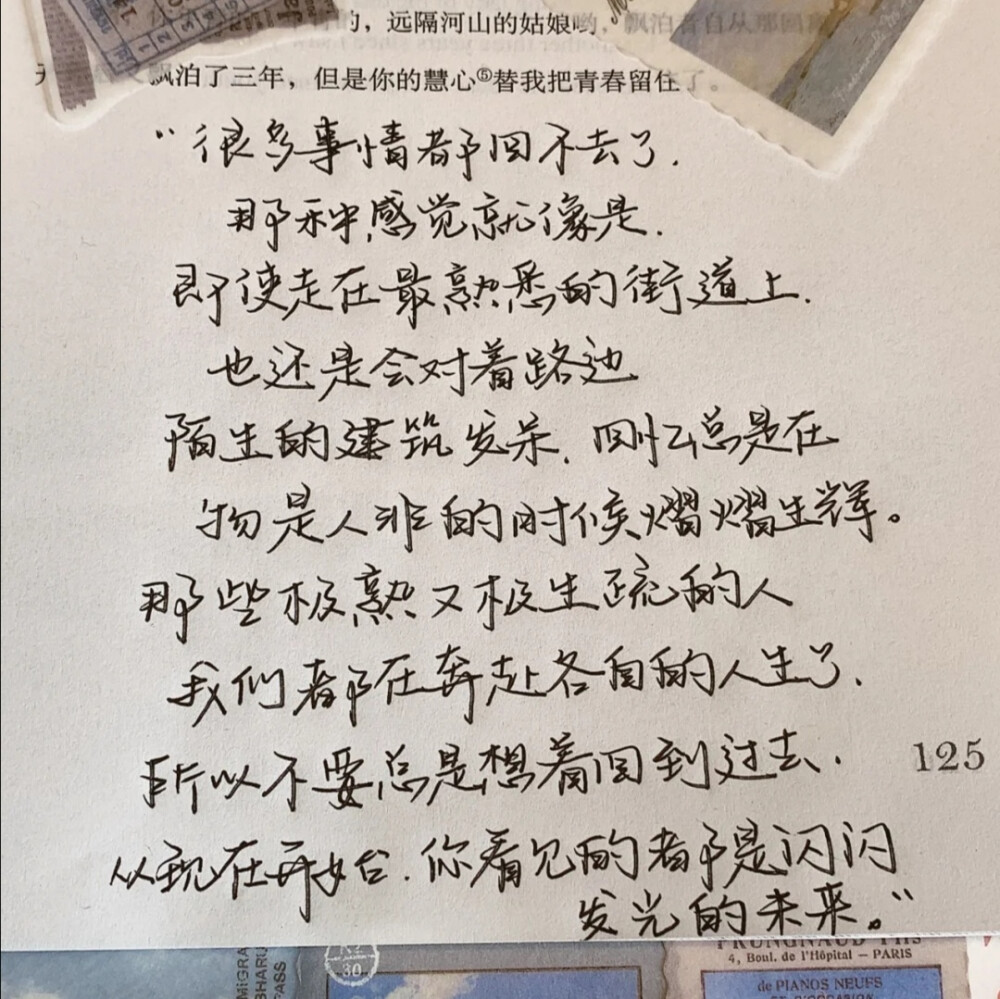 的，远隔河山的姑娘哟，飘泊者自从那回离
飘泊了三年，但是你的慧心⑤替我把青春留住了。
“很多事情都回不去了.
那种感觉就像是.
即使走在最熟悉的街道上.
也还是会对着路边
陌生的建筑发呆.回忆总是在
物是人非的时候熠熠生辉。
那些极熟又极生疏的人
我们都在奔赴各自的人生了.
所以不要总是想着回到过去.
125
从现在开始.你看见的都是闪闪
发光的未来。”
30
PRUNGNAUD
4, Boul. de l'Hôpital — PARIS
de PIANOS NEUFS